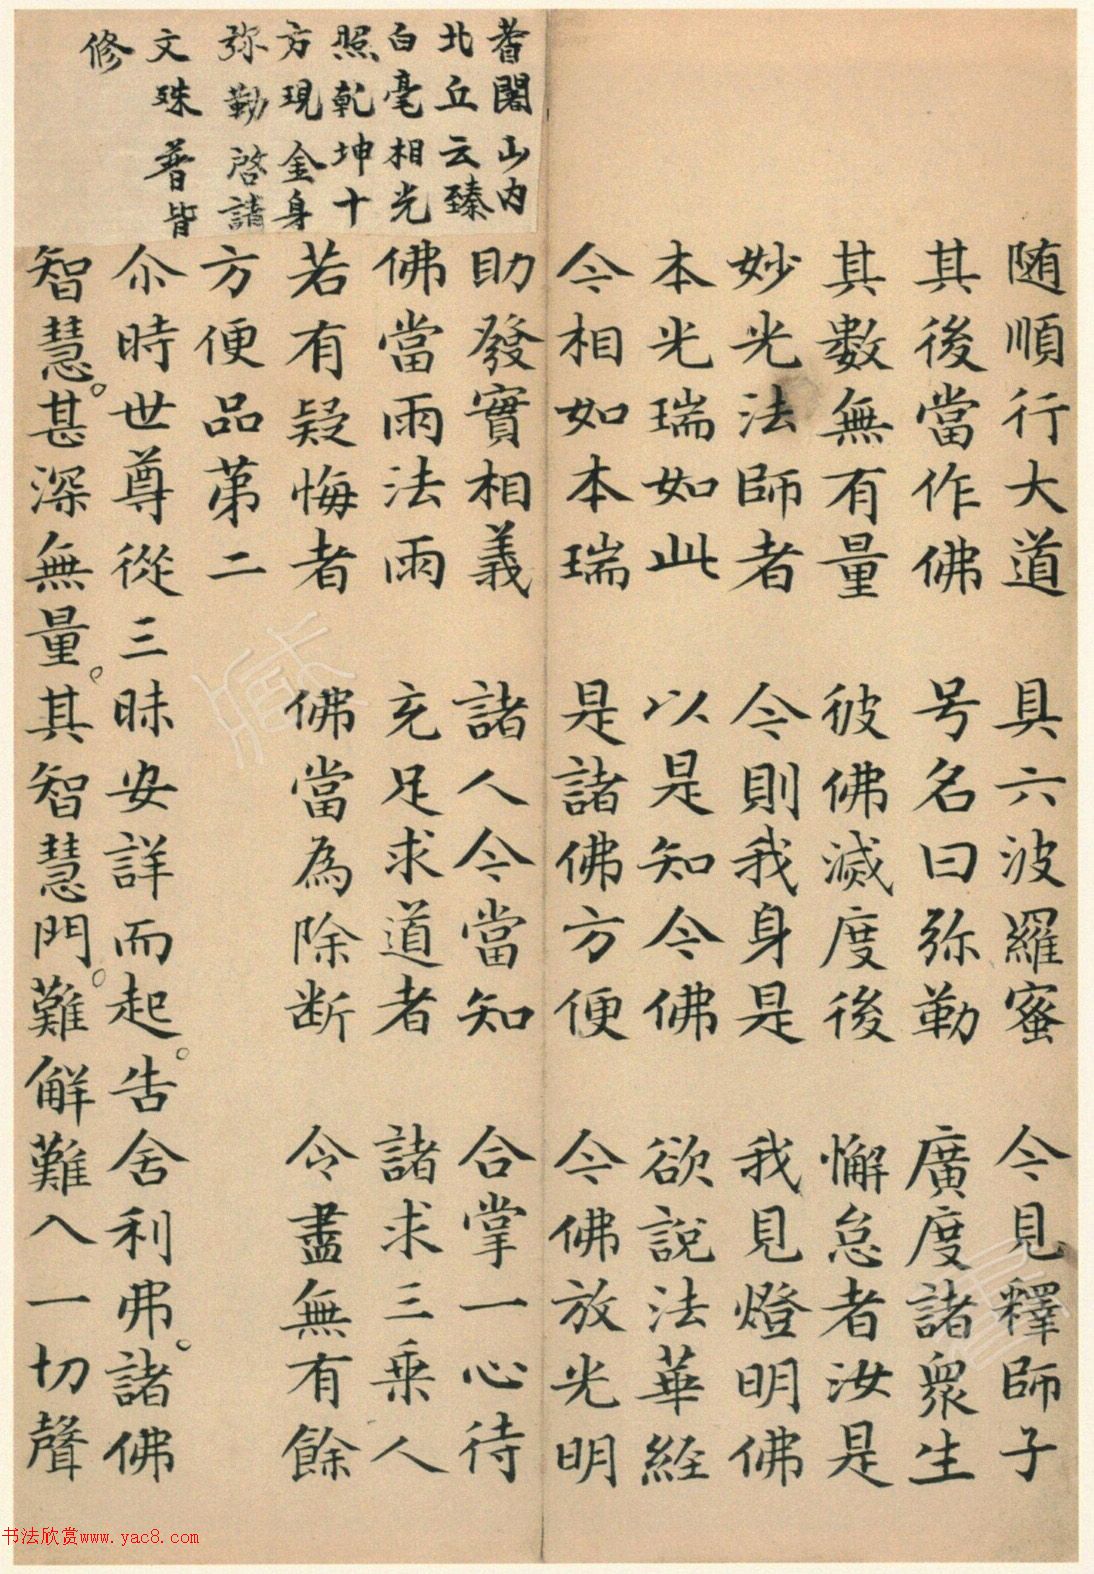 随順行大道　具六波羅蜜　今見釋師子
其後當作佛　号名曰弥勒　廣度諸衆生
其數無有量　彼佛滅度後　懈怠者汝是
妙光法師者　今則我身是　我見燈明佛
本光瑞如此　以是知今佛　欲說法華経
今相如本瑞　是諸佛方便　今佛放光明
助發實相義　諸人今當知　合掌一心待
佛當雨法雨　充足求道者　諸求三乗人
若有疑悔者　佛當為除断　令盡無有餘
方便品苐二
尒時世尊從三昧安詳而起。告舍利弗。諸佛
智慧。甚深無量。其智慧門。難解難入一切聲
耆闍山内
北丘云臻
白毫相光
照乾坤十
方現金身
弥勒啓請
文殊普皆
修
书法欣赏www.yac8.com